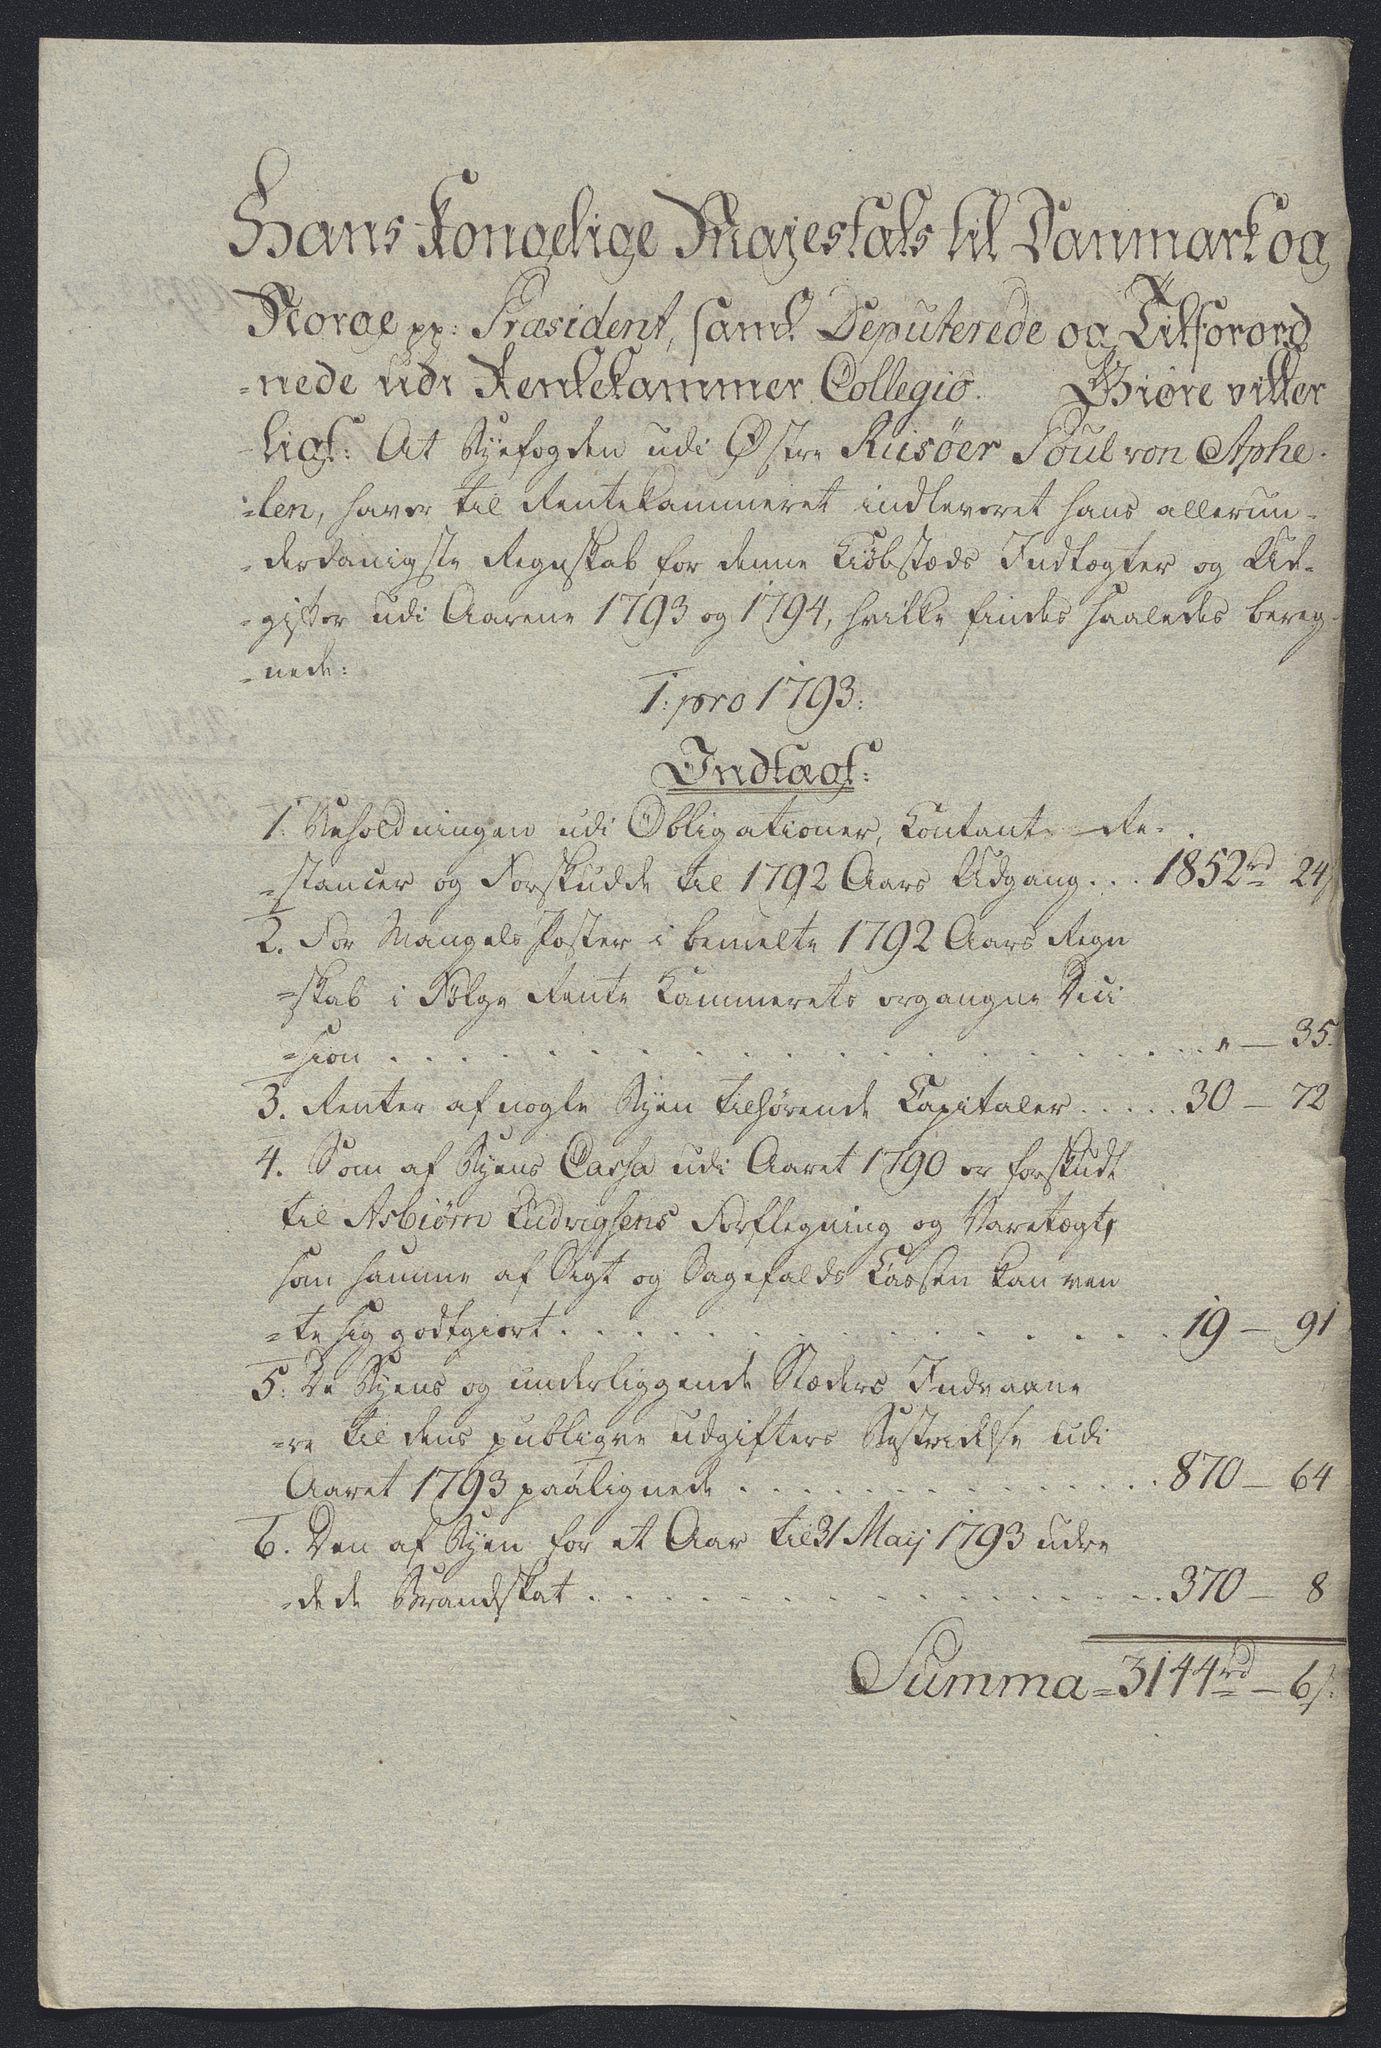 Hans Kongelige Majestæts til Danmark og
Norge pp: Præsident, samt Deputerede og Tilforord
-nede udi Rentekammer Collegio. Giøre vitter
-ligt: At Byefogden udi Østre Riisøer Poul von Aphe-
-len, haver til Rentekammeret indleveret hans allerun-
-derdanigste Regnskab for denne Kiøbstæds Indtægter og Ud-
-gifter udi Aarene 1793 og 1794, hvilke findes saaledes bereg-
-nede:
1: pro 1793:
Indtægt:
1. Beholdningen udi Obligationer, Contante Re-
-stancer og Forskudde til 1792 Aars Udgang... 1852rd 24s
2. For Mangels Poster i bemelte 1792 Aars Regn
-skab i Følge Rente Kammerets ergangne Deci
-sion . . . . . . . . . . . . " — 35.
3. Renter af nogle Byen tilhørende Capitaler . . . . . 30 — 72
4. Som af Byens Cassa udi Aaret 1790 er forskudt
til Asbiørn Ludvigsens Forflegning og Varetægt,
som samme af Sigt og Sagefalds Cassen kan ven
-te sig godtgiort . . . . . . . . . . . . 19 — 91
5. De Byens og underliggende Stæders Indvaane
-re til dens publiqve Udgifters Bestridelse udi
Aaret 1793 paalignede . . . . . . . . . . 870 — 64
6. Den af Byen for et Aar til 31 Maij 1793 udre
-dede Brandskat . . . . . . . . . . . . 370 — 8
Summa = 3144rd — 6s.